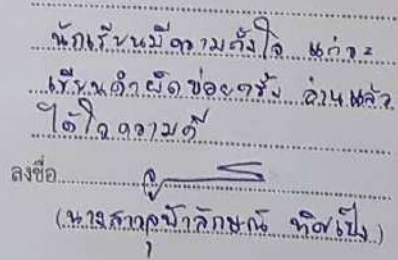 นักเรียนมีความตั้งใจ แต่จะ
เขียนคำผิดบ่อยครั้ง อ่านแล้ว
ได้ใจความดี
ลงชื่อ
(นางสาวสุปาลักษณ์ ทิศเป็ง)